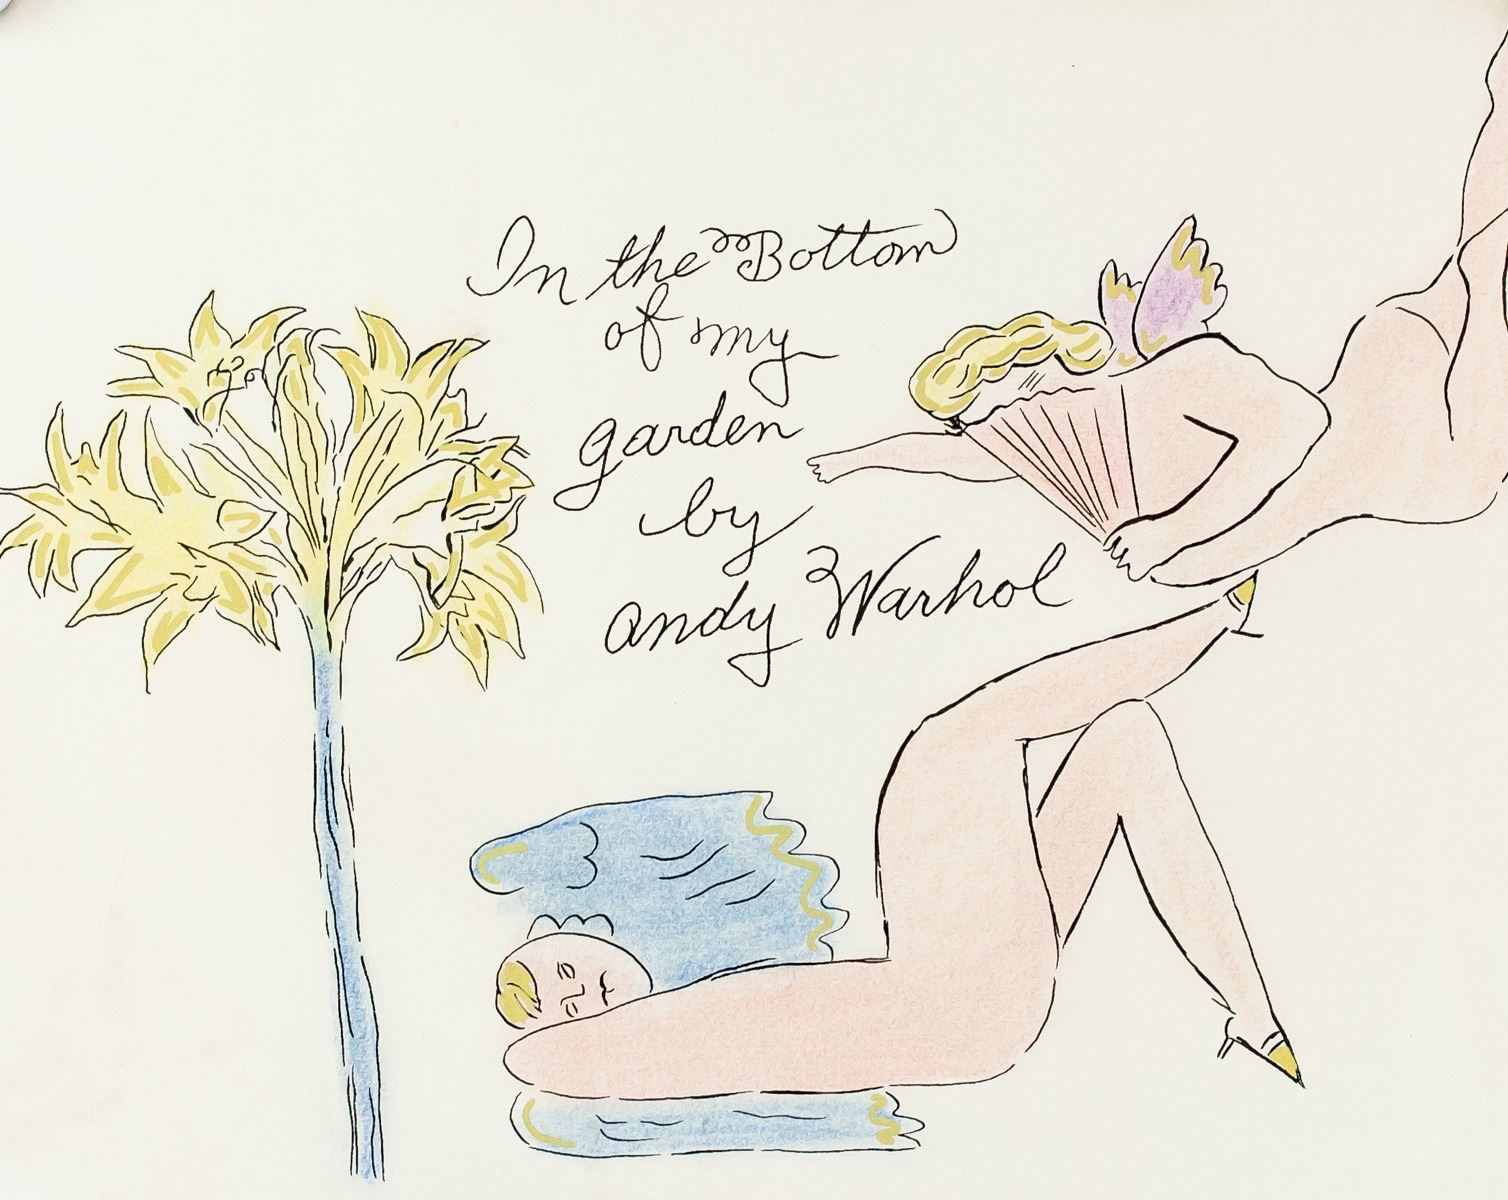 In the Bottom
of my
garden
by
andy Warhol